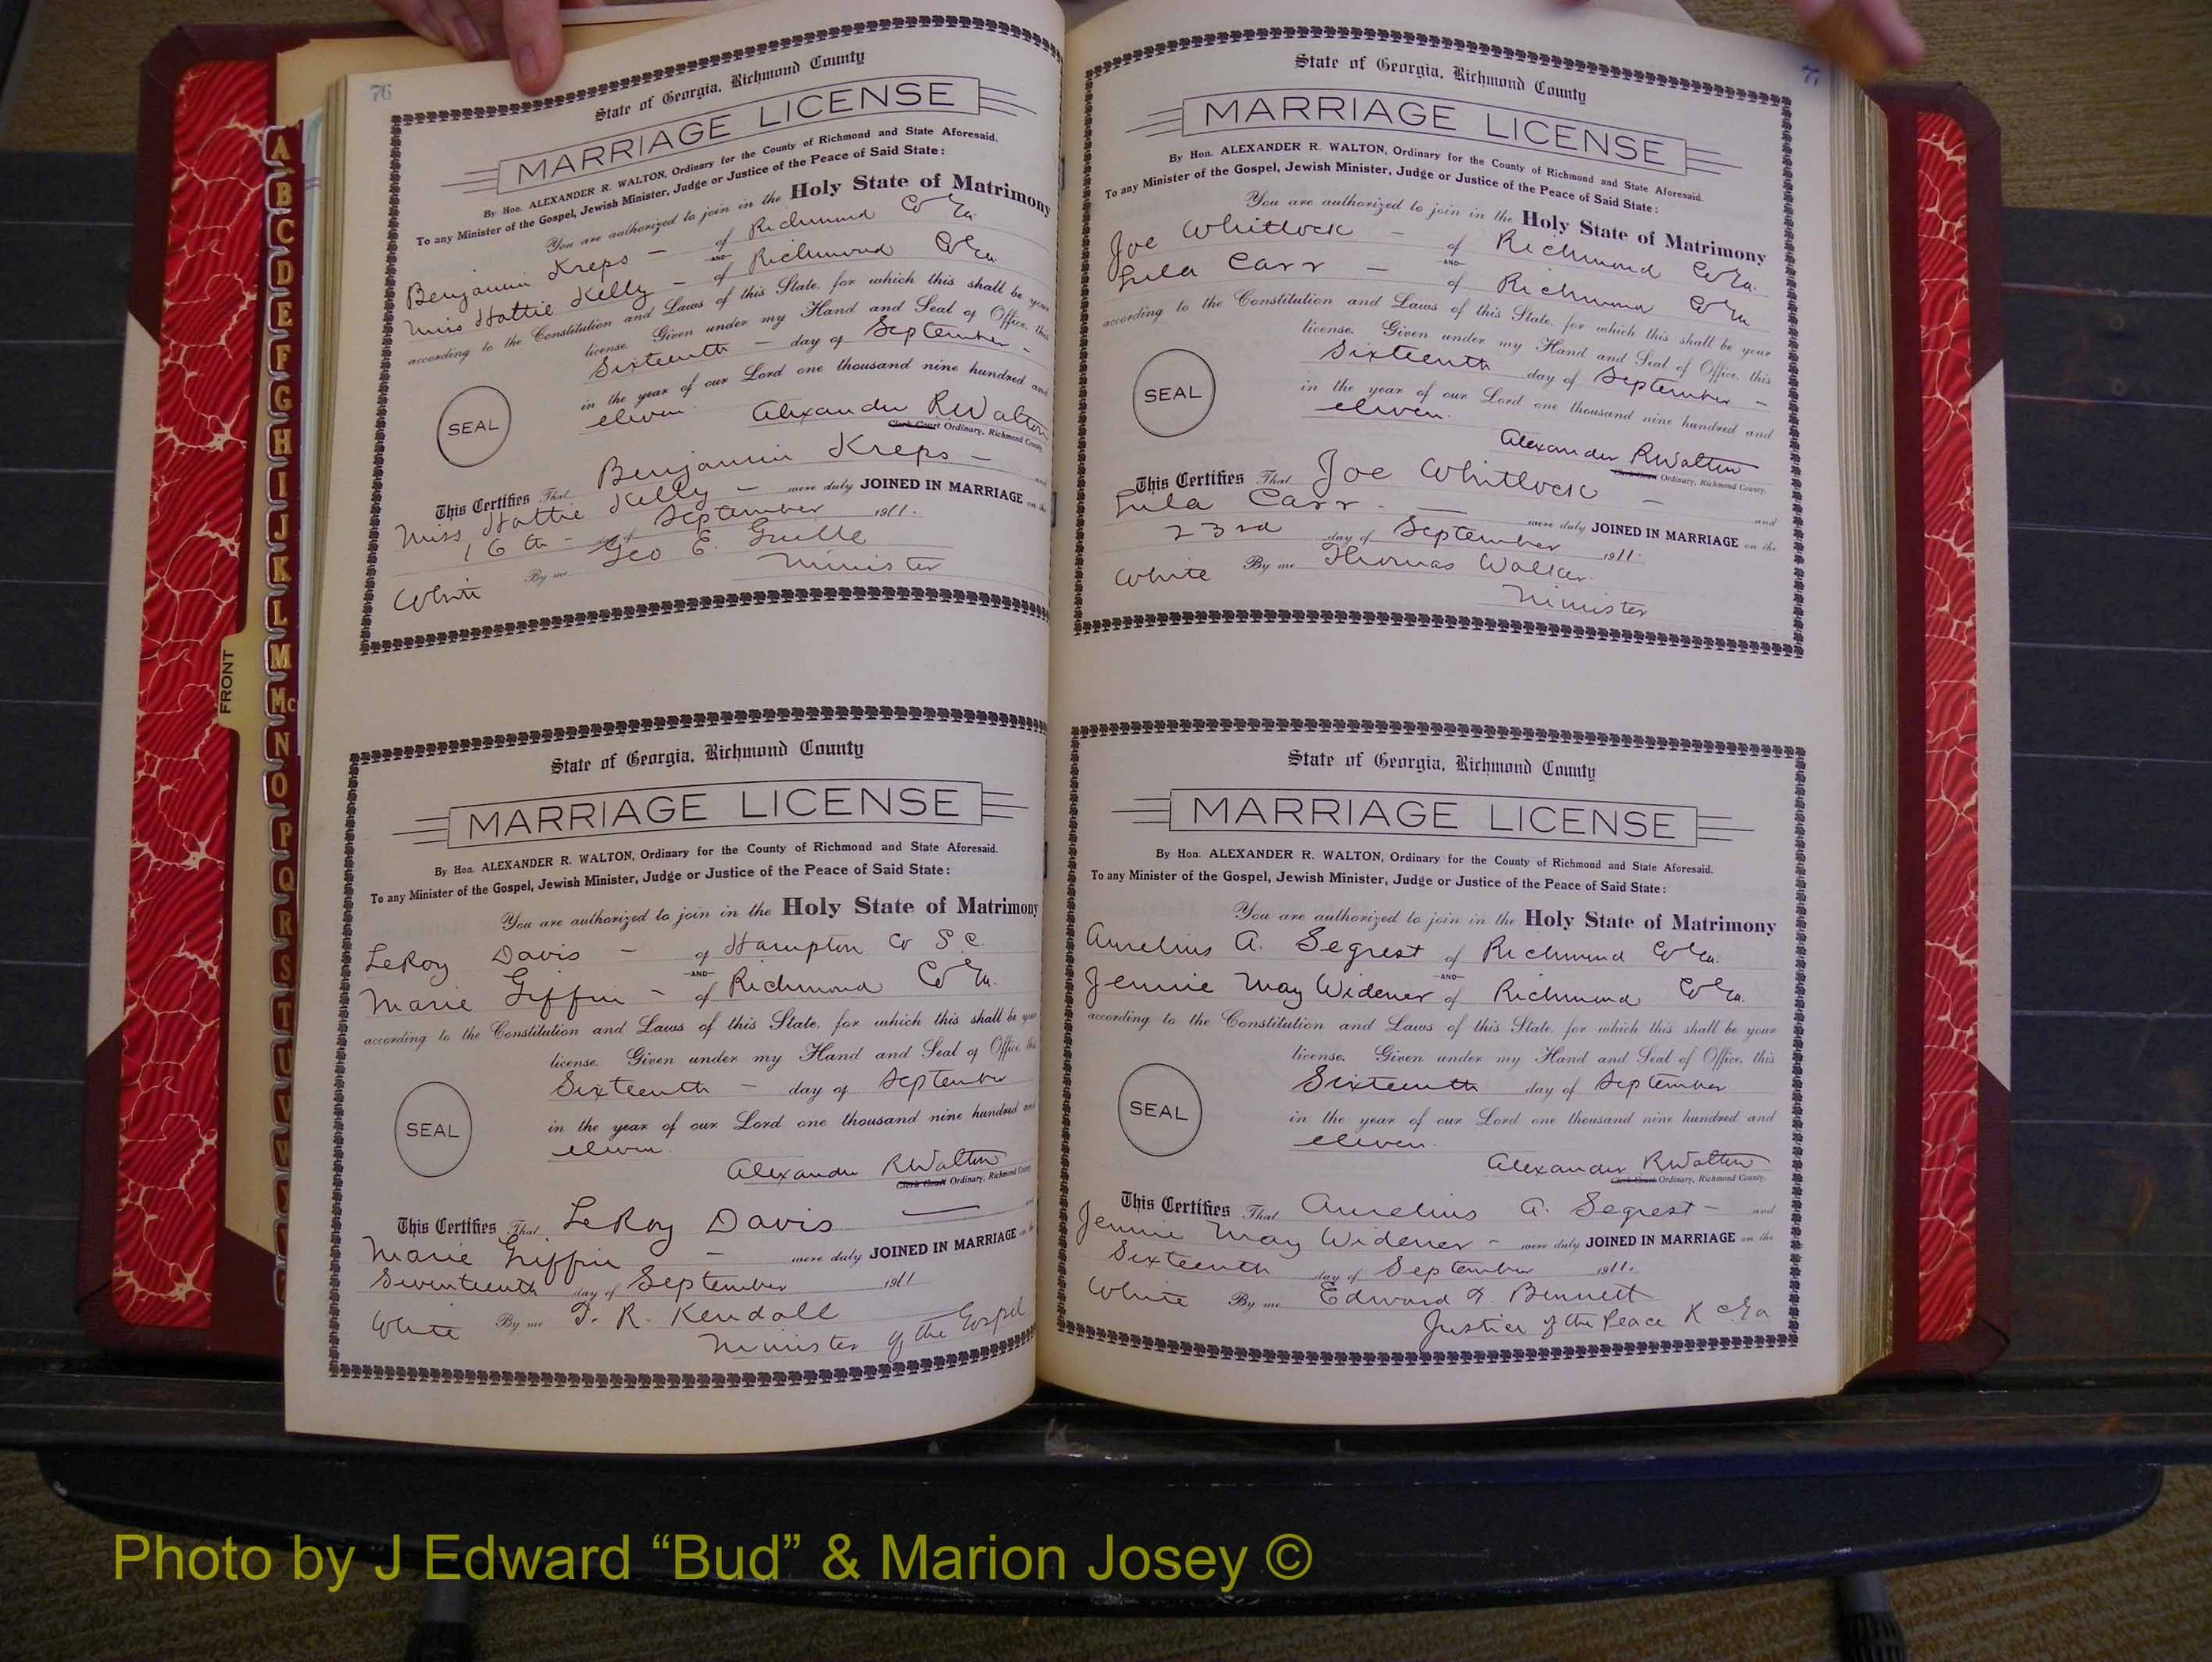 76
State of Georgia, Richmond County
MARRIAGE LICENSE
By Hon. ALEXANDER R. WALTON, Ordinary for the County of Richmond and State Aforesaid.
To any Minister of the Gospel, Jewish Minister, Judge or Justice of the Peace of Said State:
You are authorized to join in the Holy State of Matrimony
Benjamin Kreps — of Richmond Co Ga.
AND
Miss Hattie Kelly — of Richmond Co Ga.
according to the Constitution and Laws of this State, for which this shall be your
license. Given under my Hand and Seal of Office, this
Sixteenth — day of September -
in the year of our Lord one thousand nine hundred and
eleven.
SEAL
Alexander R Walton
Clerk Court Ordinary, Richmond County
This Certifies That Benjamin Kreps — and
Miss Hattie Kelly — were duly JOINED IN MARRIAGE on the
16th - day of September 1911.
White By me Geo E.
Minister
State of Georgia, Richmond County
MARRIAGE LICENSE
By Hon. ALEXANDER R. WALTON, Ordinary for the County of Richmond and State Aforesaid.
To any Minister of the Gospel, Jewish Minister, Judge or Justice of the Peace of Said State:
You are authorized to join in the Holy State of Matrimony
LeRoy Davis — of Hampton Co S.C.
AND
Marie Griffin - of Richmond Co Ga.
according to the Constitution and Laws of this State, for which this shall be your
license. Given under my Hand and Seal of Office, this
Sixteenth — day of September
in the year of our Lord one thousand nine hundred and
eleven.
SEAL
Alexander R Walton
Clerk Court Ordinary, Richmond County
This Certifies That LeRoy Davis — and
Marie Griffin — were duly JOINED IN MARRIAGE on the
Seventeenth day of September 1911
White By me T. R. Kendall
Minister of the Gospel
77
State of Georgia, Richmond County
MARRIAGE LICENSE
By Hon. ALEXANDER R. WALTON, Ordinary for the County of Richmond and State Aforesaid.
To any Minister of the Gospel, Jewish Minister, Judge or Justice of the Peace of Said State:
You are authorized to join in the Holy State of Matrimony
Joe Whitlock — of Richmond Co Ga.
AND
Lula Carr — of Richmond Co Ga
according to the Constitution and Laws of this State, for which this shall be your
license. Given under my Hand and Seal of Office, this
Sixteenth day of September —
in the year of our Lord one thousand nine hundred and
eleven.
SEAL
Alexander R Walton
Clerk Court Ordinary, Richmond County.
This Certifies That Joe Whitlock — and
Lula Carr. — were duly JOINED IN MARRIAGE on the
23rd day of September 1911.
White By me Thomas Walker.
Minister
State of Georgia, Richmond County
MARRIAGE LICENSE
By Hon. ALEXANDER R. WALTON, Ordinary for the County of Richmond and State Aforesaid.
To any Minister of the Gospel, Jewish Minister, Judge or Justice of the Peace of Said State:
You are authorized to join in the Holy State of Matrimony
Aurelius A. Segrest of Richmond Co Ga.
AND
Jennie May Widener of Richmond Co Ga.
according to the Constitution and Laws of this State, for which this shall be your
license. Given under my Hand and Seal of Office, this
Sixteenth day of September
in the year of our Lord one thousand nine hundred and
eleven.
SEAL
Alexander R Walton
Clerk Court Ordinary, Richmond County.
This Certifies That Aurelius A. Segrest — and
Jennie May Widener - were duly JOINED IN MARRIAGE on the
Sixteenth day of September 1911.
White By me Edward Bennett
Justice of the Peace R C. Ga
FRONT
A
B
C
D
E
F
G
H
I
J
K
L
M
Mc
N
O
P
Q
R
S
T
U
V
W
Photo by J Edward “Bud” & Marion Josey ©